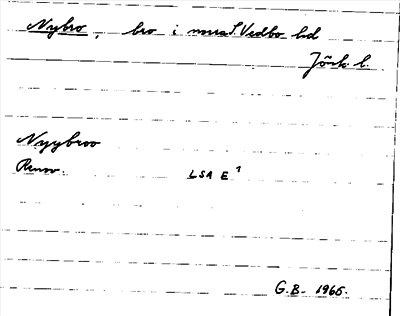 Nybro, bro i norra S. Vedbo hd
Jönk. l.
Nyybroo
Renov. LSA E 1
G.B. 1965.